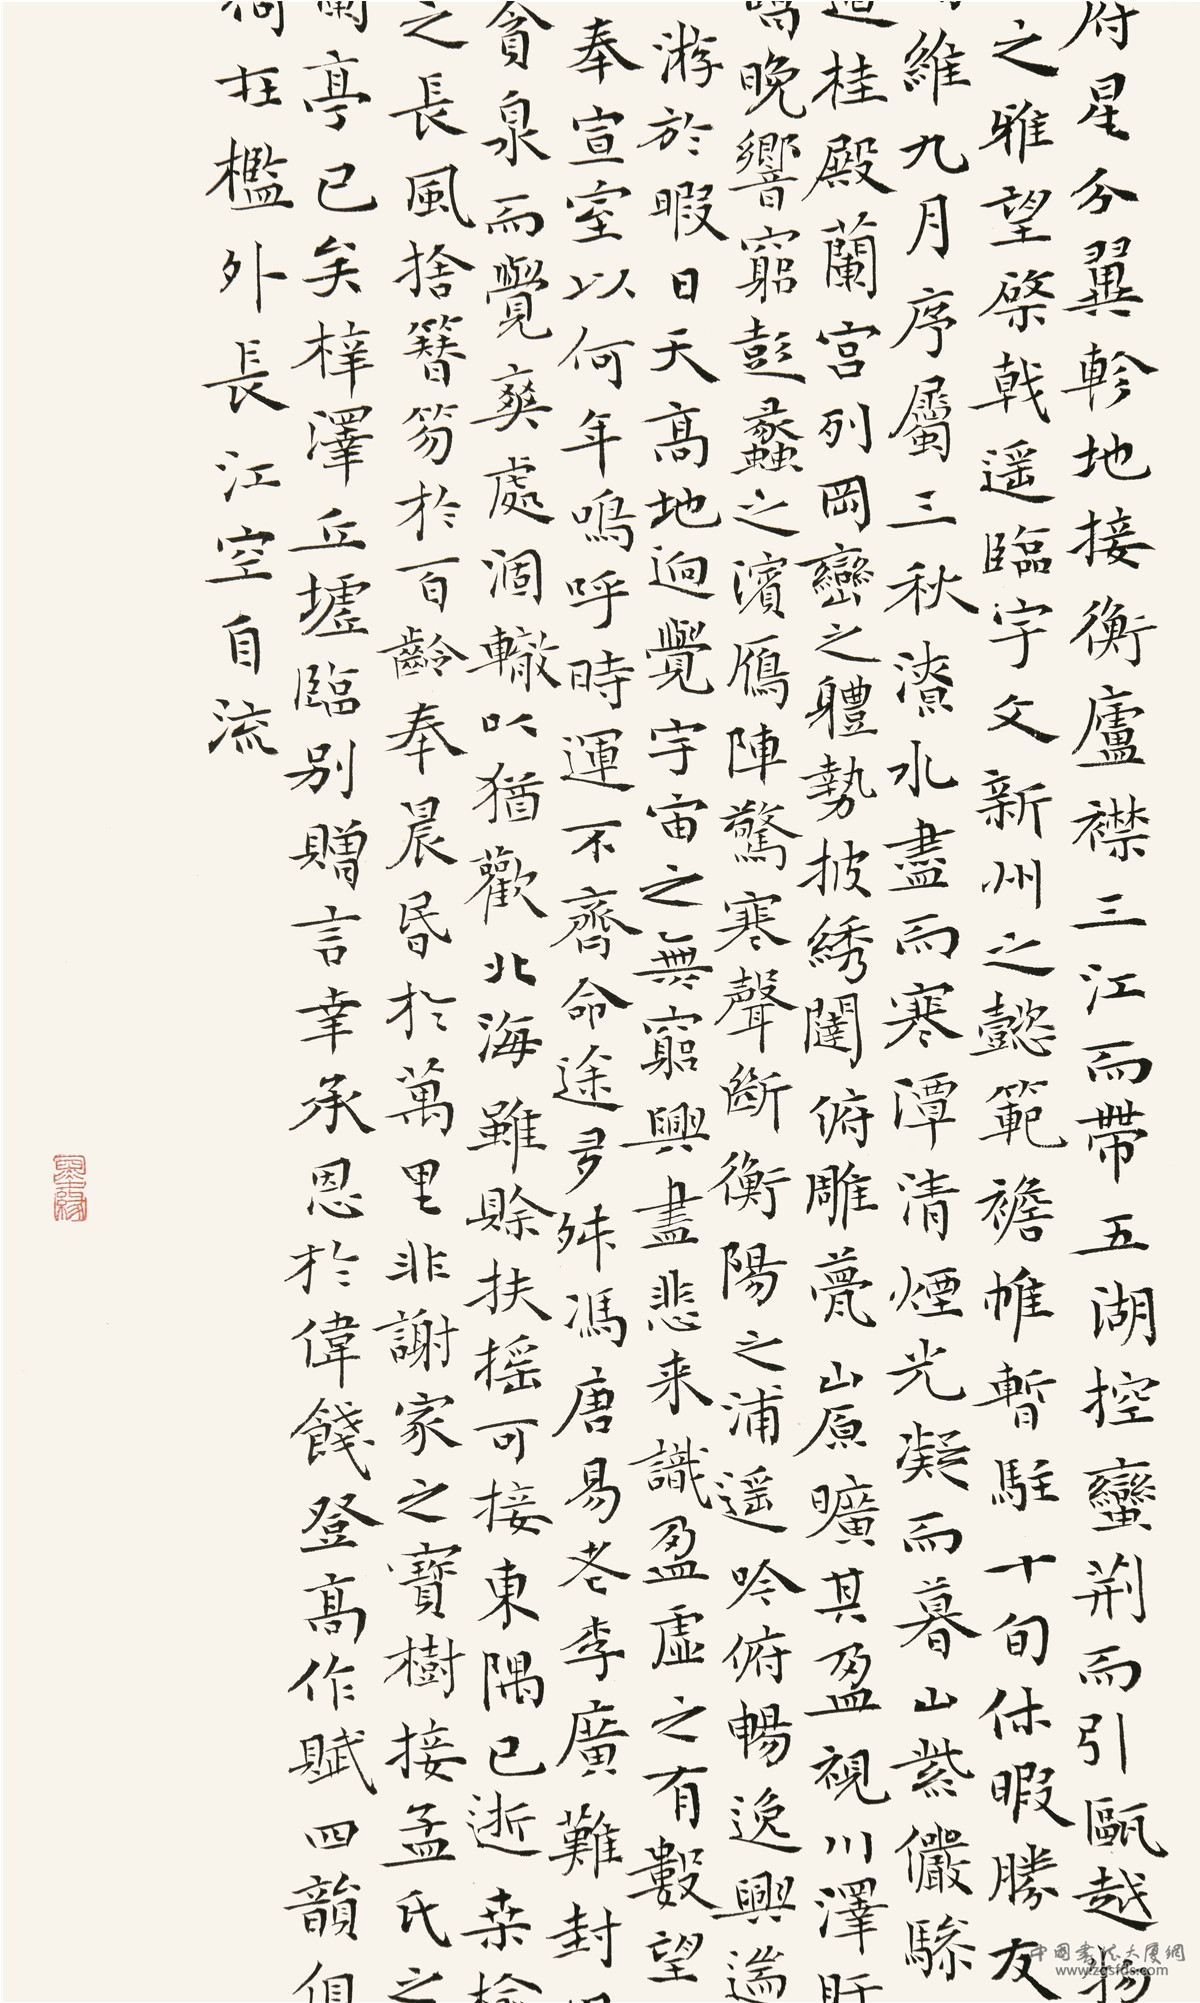 府星分翼軫地接衡廬襟三江而帶五湖控蠻荆而引甌越物
之雅望棨戟遥臨宇文新州之懿範襜帷暫駐十旬休暇勝友
維九月序屬三秋潦水盡而寒潭清煙光凝而暮山紫儼驂
迴桂殿蘭宫列岡巒之體勢披綉闥俯雕甍山原曠其盈視川澤盱
唱晚響窮彭蠡之濱雁陣驚寒聲斷衡陽之浦遥吟俯暢逸興遄
游於暇日天高地迥覺宇宙之無窮興盡悲来識盈虚之有數望
奉宣室以何年嗚呼時運不齊命途多舛馮唐易老李廣難封
貪泉而覺爽處涸轍以猶歡北海雖賒扶摇可接東隅已逝桑榆
之長風捨簪笏於百齡奉晨昏於萬里非謝家之寶樹接孟氏之
蘭亭已矣梓澤丘墟臨别贈言幸承恩於偉餞登高作賦四韻俱
何在檻外長江空自流
墨緣
中国書法大廈網
www.zgsfds.com